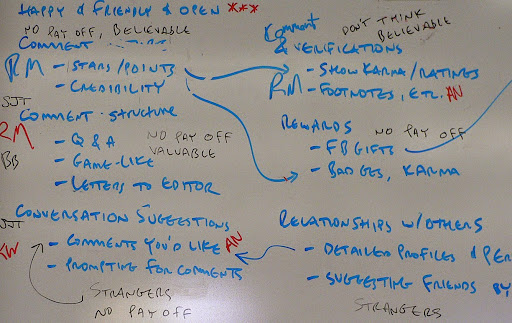 HAPPY & FRIENDLY & OPEN ***
NO PAY OFF, BELIEVABLE
COMMENT
RM - STARS/POINTS
- CREDIBILITY
SJT
COMMENT STRUCTURE
RM
- Q & A
NO PAY OFF
VALUABLE
BB
- GAME-LIKE
- LETTERS TO EDITOR
SJT
CONVERSATION SUGGESTIONS
KW
- COMMENTS YOU'D LIKE AN
- PROMPTING FOR COMMENTS
STRANGERS
NO PAY OFF
DON'T THINK
BELIEVABLE
COMMENT
& VERIFICATIONS
- SHOW KARMA/RATINGS
RM - FOOTNOTES, ETC. AN
REWARDS
NO PAY OFF
- FB GIFTS
- BADGES, KARMA
RELATIONSHIPS W/OTHERS
- DETAILED PROFILES & PER
- SUGGESTING FRIENDS BY
STRANGERS